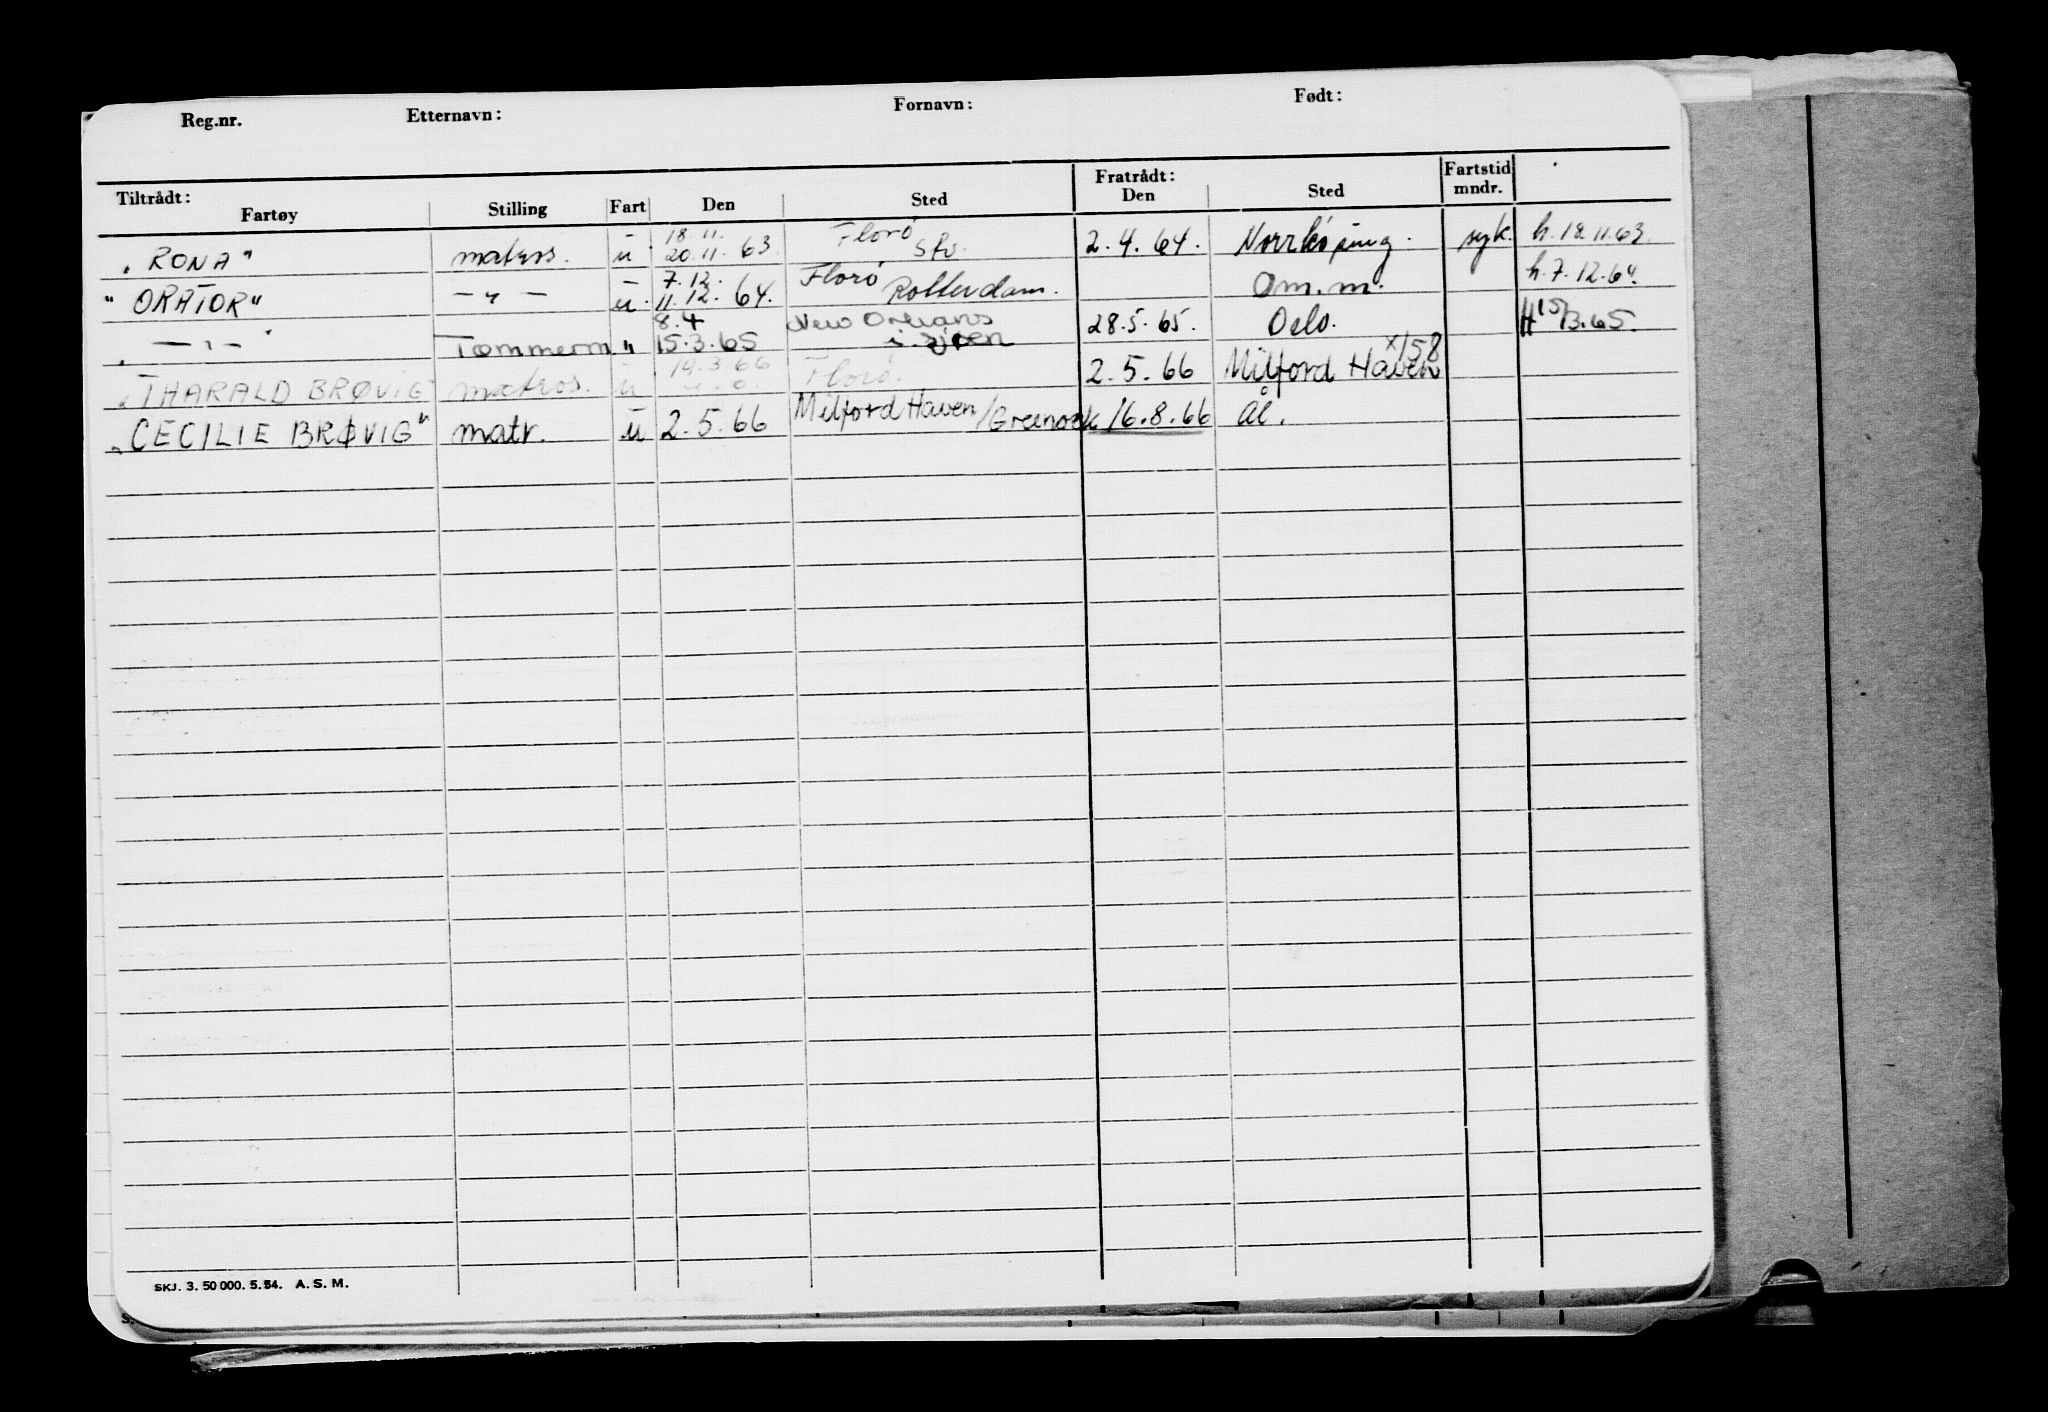 Reg.nr. Etternavn: Fornavn: Født:
Tiltrådt: Fratrådt: Fartstid
Fartøy Stilling Fart Den Sted Den Sted mndr.
18.11. Florø
"RONA" matros. u 20.11.63. Sfs. 2.4.64. Norrköping. syk. h.18.11.63.
7.12. Florø h.7.12.64.
"ORATOR" — „ — u. 11.12.64. Rotterdam. Om.m.
8.4 New Orleans 28.5.65. Oslo. H 15/3.65.
— „ — Tømmerm " 15.3.65 i sjøen
19.3.66 x/58
"THARALD BRØVIG matros. u Florø. 2.5.66 Milford Haven
"CECILIE BRØVIG" matr. u 2.5.66 Milford Haven/Greenock 16.8.66 ål.
SKJ. 3. 50 000. 5. 54. A. S. M.